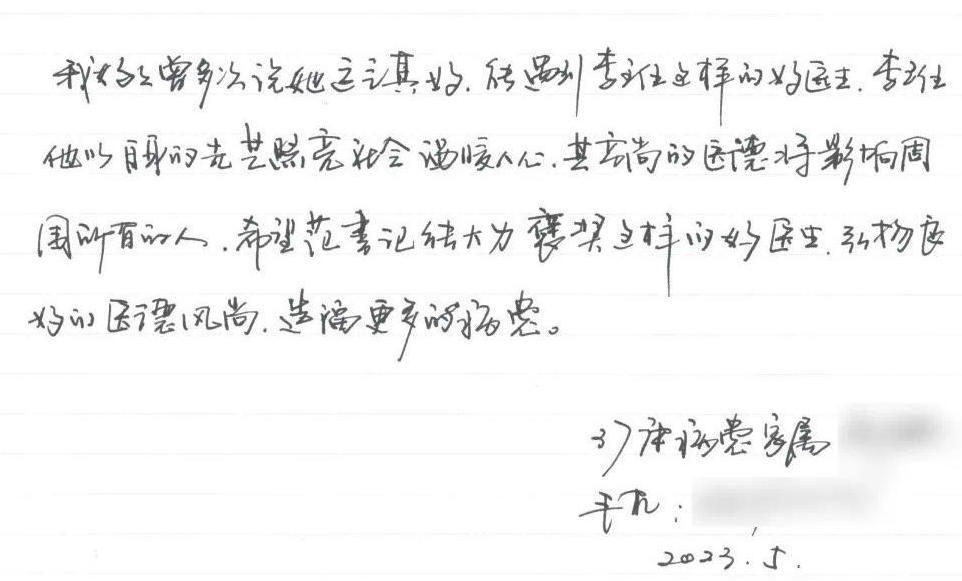 我妈妈曾多次说她运气真好,能遇到李主任这样的好医生,李主任
他以自身的光芒照亮社会温暖人心,其高尚的医德将影响周
围所有的人,希望范书记能大力褒奖这样的好医生,弘扬良
好的医德风尚,造福更多的病患。
37床病患家属
手机:
2023.5.